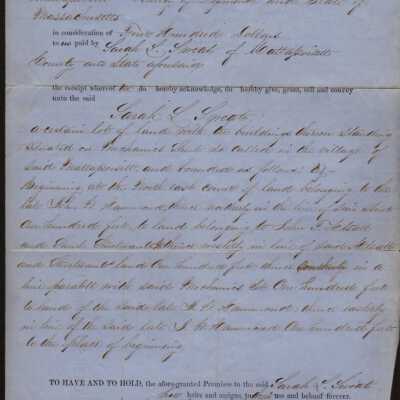 County of Plymouth and State of
Massachusetts
in consideration of Five Hundred Dollars
to us paid by Sarah L. Sweat of Mattapoisett
County and State aforesaid
the receipt whereof we do hereby acknowledge, do hereby give, grant, sell and convey
unto the said
Sarah L. Sweat,
a certain lot of land with the buildings thereon standing
situated on Mechanics Street so called in the village of
said Mattapoisett and bounded as follows viz-
Beginning at the North east corner of land belonging to the
late J. H. Hammond, thence in the line of said street
One hundred feet to land belonging to John
and thence westerly in line of said
and land One hundred feet thence in a
line parallel with said Mechanics St. One hundred feet
to land of the said late J. H. Hammond thence easterly
in line of the said late J. H. Hammond One hundred feet
to the place of beginning
TO HAVE AND TO HOLD, the afore-granted Premises to the said Sarah L. Sweat
her heirs and assigns, to her use and behoof forever.